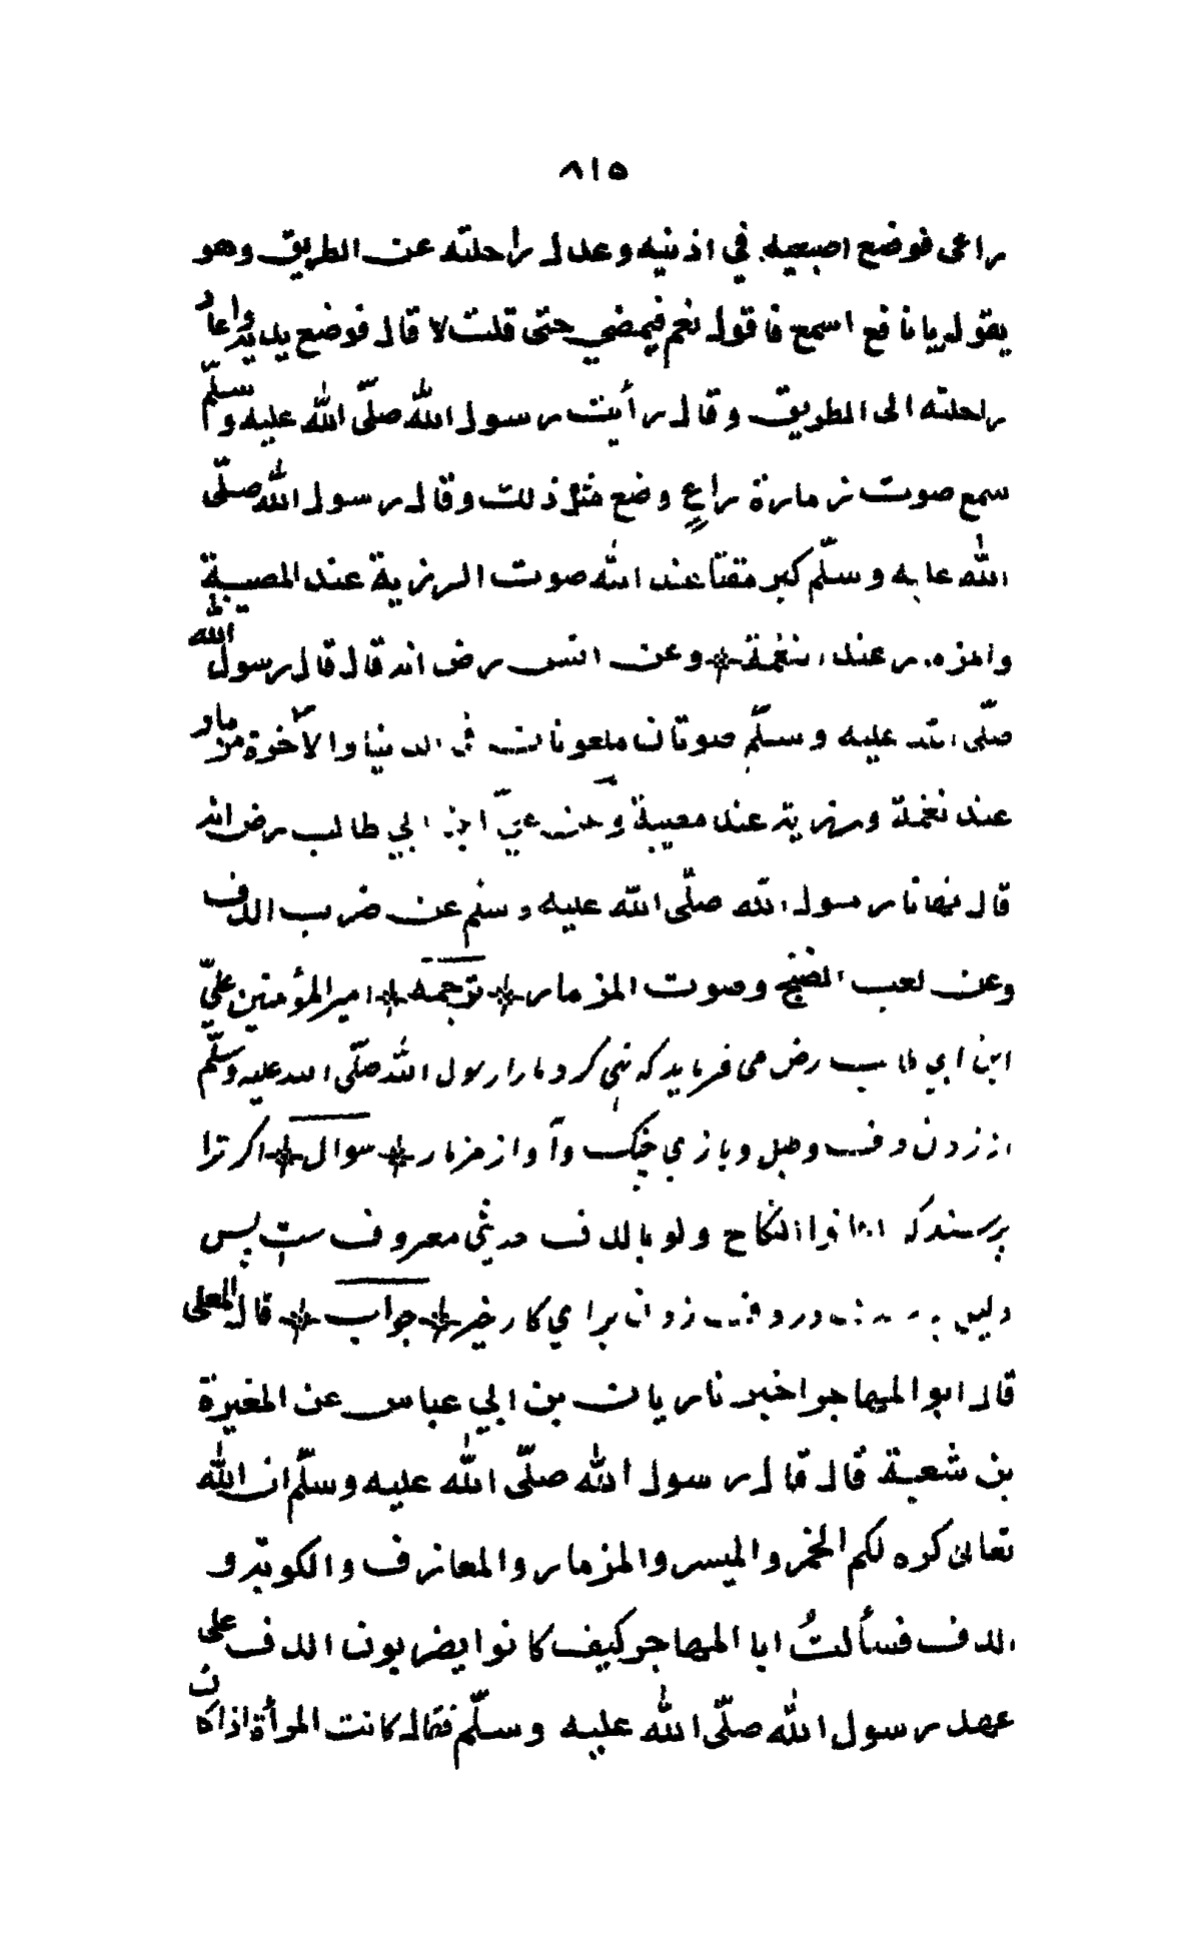 ٨١٥
راعى فوضع اصبعيه في اذنيه وعدل راحلته عن الطريق وهو
يقول يا نافع اسمع فاقول نعم فيمضي حتى قلت لا قال فوضع يديه واعاد
راحلته الى الطريق وقال رأيت رسول الله صلّى الله عليه وسلّم
سمع صوت زمارة راعٍ وضع مثل ذلك وقال رسول الله صلّى
الله عليه وسلّم كبر مقتا عند الله صوت الرزية عند المصيبة
والمزمار عند النغمة * وعن انس رض انه قال قال رسول الله
صلّى الله عليه وسلّم صوتان ملعونان في الدنيا والآخرة مزمار
عند نغمة ورزية عند مصيبة وعن عليّ ابن ابي طالب رض انه
قال نهانا رسول الله صلّى الله عليه وسلم عن ضرب الدف
وعن لعب الصنج وصوت المزمار * ترجمه * امير المؤمنين عليّ
ابن ابي طالب رض مى فرمايد كه نهي كرد مارا رسول الله صلّى الله عليه وسلّم
از زدن دف وطبل وبازي چنگ وآواز مزمار * سوال * اكر ترا
پرسند كه النكاح ولو بالدف حديثى معروف ست پس
دليل در دف زدن براي كار خير * جواب * قال المعلى
قال ابو المهاجر اخبرنا ريان بن ابي عباس عن المغيرة
بن شعبة قال قال رسول الله صلّى الله عليه وسلّم ان الله
تعالى كره لكم الخمر والميسر والمزمار والمعازف والكوبة و
الدف فسألتُ ابا المهاجر كيف كانوا يضربون الدف على
عهد رسول الله صلّى الله عليه وسلّم فقال كانت المرأة اذا كان